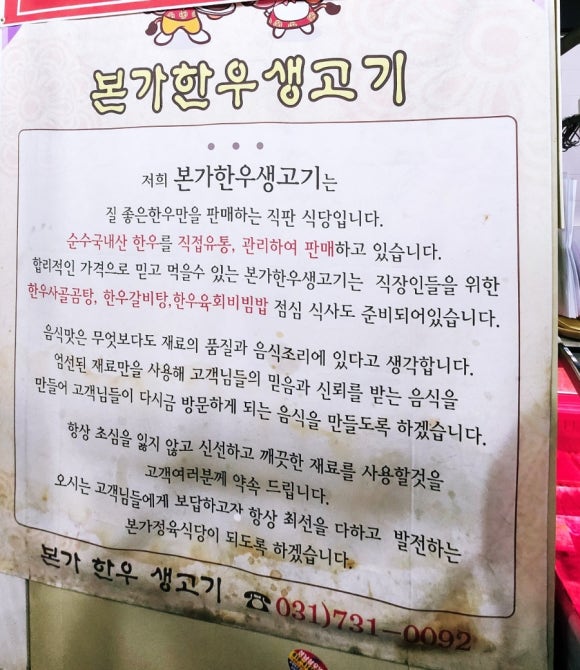 본가한우생고기
저희 본가한우생고기는
질 좋은한우만을 판매하는 직판 식당입니다.
순수국내산 한우를 직접유통, 관리하여 판매하고 있습니다.
합리적인 가격으로 믿고 먹을수 있는 본가한우생고기는 직장인들을 위한
한우사골곰탕, 한우갈비탕,한우육회비빔밥 점심 식사도 준비되어있습니다.
음식맛은 무엇보다도 재료의 품질과 음식조리에 있다고 생각합니다.
엄선된 재료만을 사용해 고객님들의 믿음과 신뢰를 받는 음식을
만들어 고객님들이 다시금 방문하게 되는 음식을 만들도록 하겠습니다.
항상 초심을 잃지 않고 신선하고 깨끗한 재료를 사용할것을
고객여러분께 약속 드립니다.
오시는 고객님들에게 보답하고자 항상 최선을 다하고 발전하는
본가정육식당이 되도록 하겠습니다.
본가 한우 생고기 ☎031)731-0092